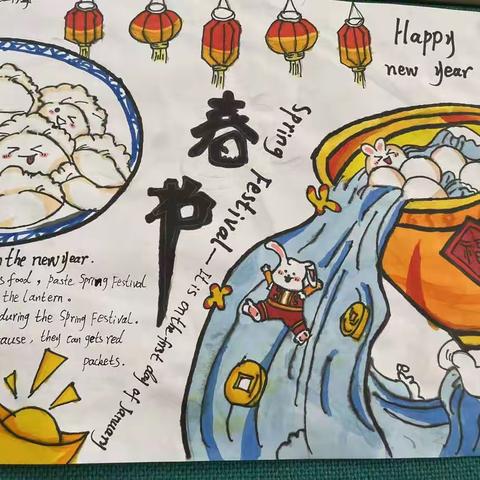 Happy
new year
春节
Spring Festival — It is on the first day of January
the new year.
s food, paste Spring Festival
the lantern.
during the Spring Festival.
cause, they can gets red
packets.